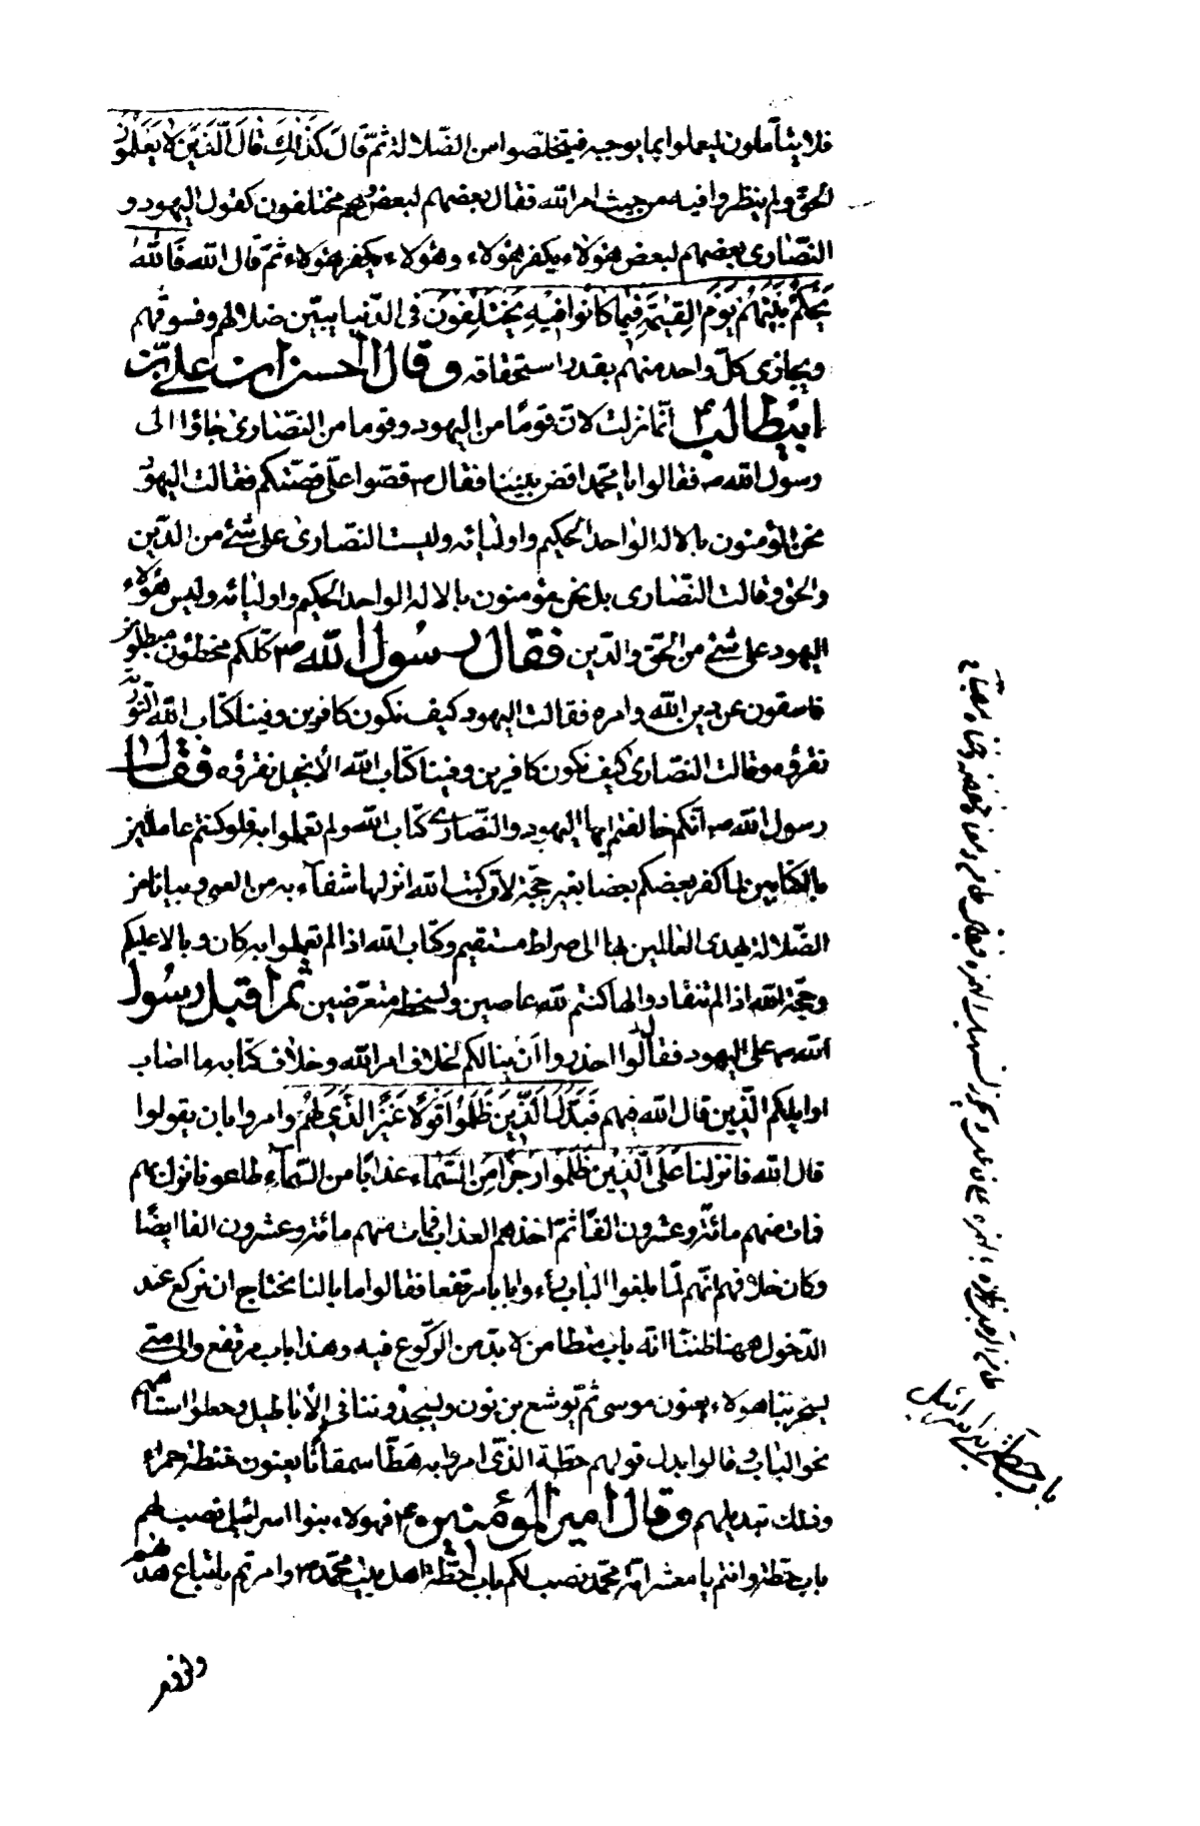 فلا يتأملون ليعملوا بما يوجبه فيتخلصوا من الضّلالة ثمّ قال كَذٰلِكَ قالَ الَّذينَ لا يَعْلَمُونَ
الحق ولم ينظروا فيه من حيث امر الله فقال بعضهم لبعض وهم مختلفون كقول اليهود و
النّصارى بعضهم لبعض هؤلاء يكفر هؤلاء وهؤلاء يكفر هؤلاء ثمّ قال الله فَاللهُ
يَحْكُمُ بَيْنَهُمْ يَوْمَ القِيٰمَةِ فيما كانوا فيهِ يَخْتَلِفُونَ في الدّنيا يبيّن ضلالهم وفسوقهم
ويجازى كلّ واحد منهم بقدر استحقاقه وقال الحسن ابن علي بن
ابيطالب ع انّما نزلت لانّ قومًا من اليهود وقوما من النّصارى جاؤا الى
رسول الله ص فقالوا يا محمّد اقض بيننا فقال ص قصّوا علىّ قصّتكم فقالت اليهود
نحن المؤمنون بالاله الواحد الحكيم واوليائه وليست النّصارى على شئ من الدّين
والحق وقالت النّصارى بل نحن مؤمنون بالاله الواحد الحكيم واوليائه وليس هؤلاء
اليهود على شئ من الحق والدّين فقال رسول الله ص كلّكم مخطئون مبطلون
فاسقون عن دين الله وامره فقالت اليهود كيف نكون كافرين وفينا كتاب الله التّورية
نقرؤه وقالت النّصارى كيف نكون كافرين وفينا كتاب الله الأنجيل نقرؤه فقال
رسول الله ص انّكم خالفتم ايها اليهود والنّصارى كتاب الله ولم تعملوا به فلو كنتم عاملين
بالكتابين لما كفر بعضكم بعضا بغير حجّة لانّ كتب الله انزلها شفآء به من العمى وبيانا من
الضّلالة يهدى العاملين بها الى صراط مستقيم وكتاب الله اذا لم تعملوا به كان وبالا عليكم
وحجّة الله اذا لم تنقادوا لها كنتم لله عاصين ولسخطه متعرّضين ثمّ اقبل رسول
الله ص على اليهود فقال احذروا ان ينالكم لخلاف امر الله وخلاف كتابه ما اصاب
اوايلكم الّذين قال الله فيهم فَبَدَّلَ الَّذينَ ظَلَمُوا قَوْلاً غَيْرَ الَّذي لَهُمْ وامروا بان يقولوا
قال الله فانزلنا عَلَى الَّذينَ ظَلَمُوا رِجْزًا مِنَ السَّمَاء عذابًا من السّمآء طاعونا نزل بهم
فمات منهم مائة وعشرون الفًا ثمّ اخذهم العذاب فمات منهم مائة وعشرون الفا ايضًا
وكان خلافهم انّهم لمّا بلغوا الباب راوا بابا مرتفعا فقالوا ما بالنا نحتاج ان نركع عند
الدّخول ههنا ظننّا انّه باب متطامن لا بدّ من الركوع فيه وهذا باب مرتفع والى متى
يسخر بنا هؤلاء يعنون موسى ثمّ يوشع بن نون ويسجدوننا في الأباطيل وجعلوا استاههم
نحو الباب وقالوا بدل قولهم حطّة الّذى امروا به هطّا سمقاثا يعنون حنطة حمراء
وذلك تبديلهم وقال امير المؤمنين ع فهولاء بنوا اسرائيل نصب لهم
باب حطّة وانتم يا معشر امّة محمّد نصب لكم باب حطّة اهل بيت محمّد ص وامرتم باتباع هداهم
باب حطّة بنى اسرائيل